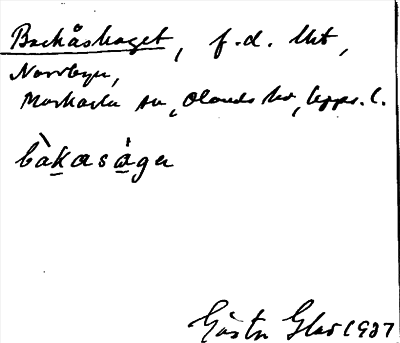 Backåshaget, f.d. lht,
Norrbyn,
Markarla sn, Olands hd, Upps. l.
bàkasàgu
Gösta Glas 1937